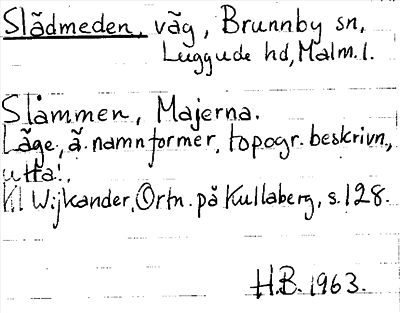 Slädmeden, väg, Brunnby sn,
Luggude hd, Malm. l.
Slåmmen, Majerna.
Läge, ä. namnformer, topogr. beskrivn.,
utta!.
Kl Wijkander, Ortn. på Kullaberg, s. 128.
H.B. 1963.